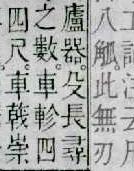 八觚。此無刃
廬器。殳長尋
之數。車軫四
四尺。車戟崇